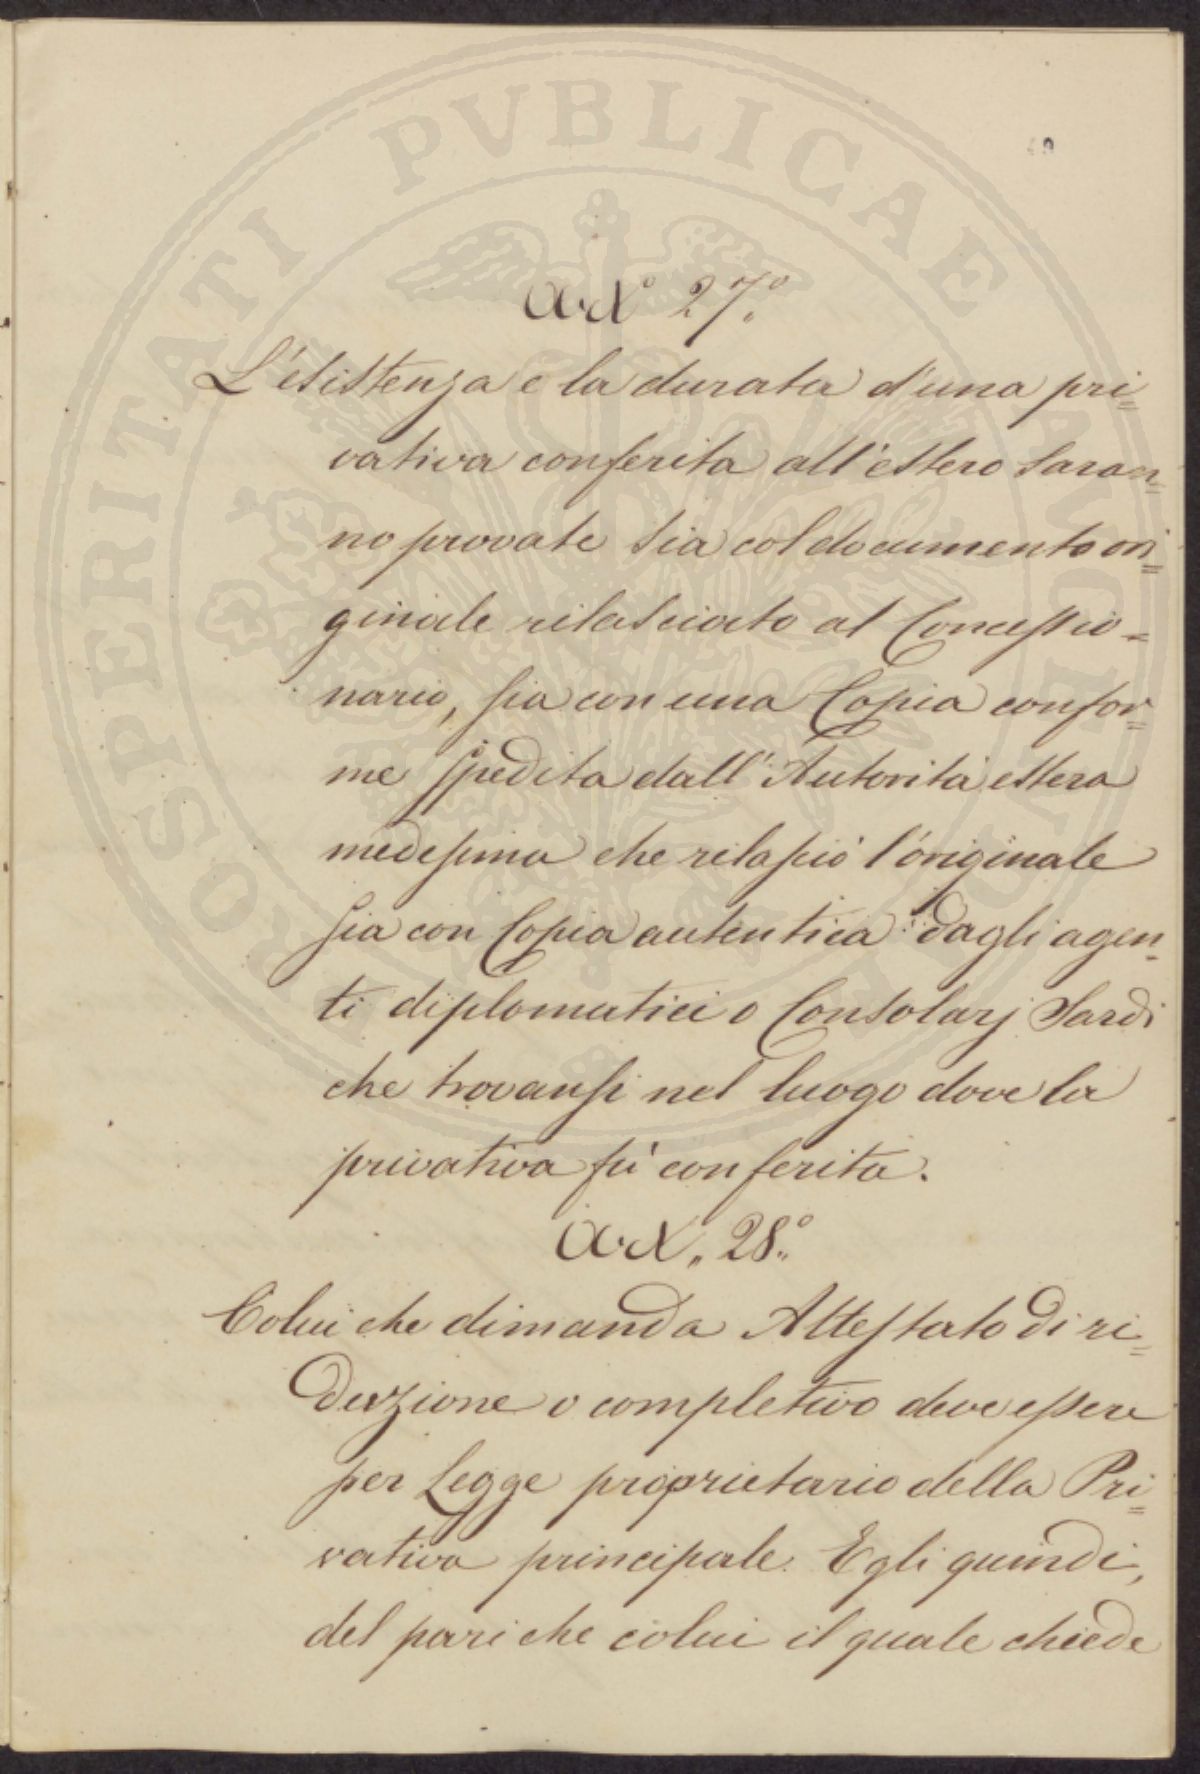 PROSPERITATI PVBLICAE AVGENDAE
Art.° 27.°
L'esistenza e la durata d'una pri=
vativa conferita all'estero saran=
no provate sia col documento ori=
ginale rilasciato al Concessio=
nario, sia con una Copia confor=
me spedita dall'Autorità estera
medesima che rilasciò l'originale
sia con Copia autentica dagli agen=
ti diplomatici o Consolarj Sardi
che trovansi nel luogo dove la
privativa fù conferita.
Art. 28.°
Colui che dimanda Attestato di ri=
duzione o completivo deve essere
per Legge proprietario della Pri=
vativa principale. Egli quindi,
del pari che colui il quale chiede